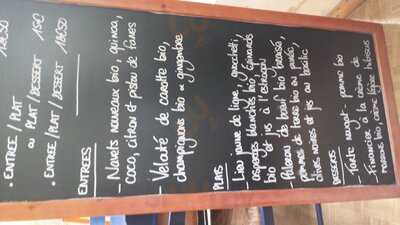 • ENTRÉE / PLAT
ou PLAT / DESSERT 15€50
• ENTRÉE / PLAT / DESSERT 18€50
ENTRÉES
- Navets nouveaux bio, quinoa,
coco, citron et pistou de fanes
- Velouté de carotte bio,
champignons bio et gingembre
PLATS
- Lieu jaune de ligne, gnocchetti,
asperges blanches bio, épinards
bio et jus à l'estragon
- Paleron de bœuf bio braisé,
pommes de terre bio au garlic,
olives noires et jus au basilic
DESSERTS
- Tarte nougat - pomme bio
- Financier à la crème de
marrons bio, crème légère hibiscus